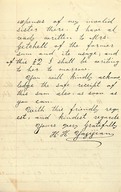 expenses of my invalid
sister there. I have al-
ready written to Mrs.
Getchell of the former
sum and its usage; and
of this £2 I shall be writing
to her to-morrow.
You will kindly acknow-
ledge the safe receipt of
this sum also as soon as
you can.
With this friendly req-
uest, and kindest regards
Yours very gratefully